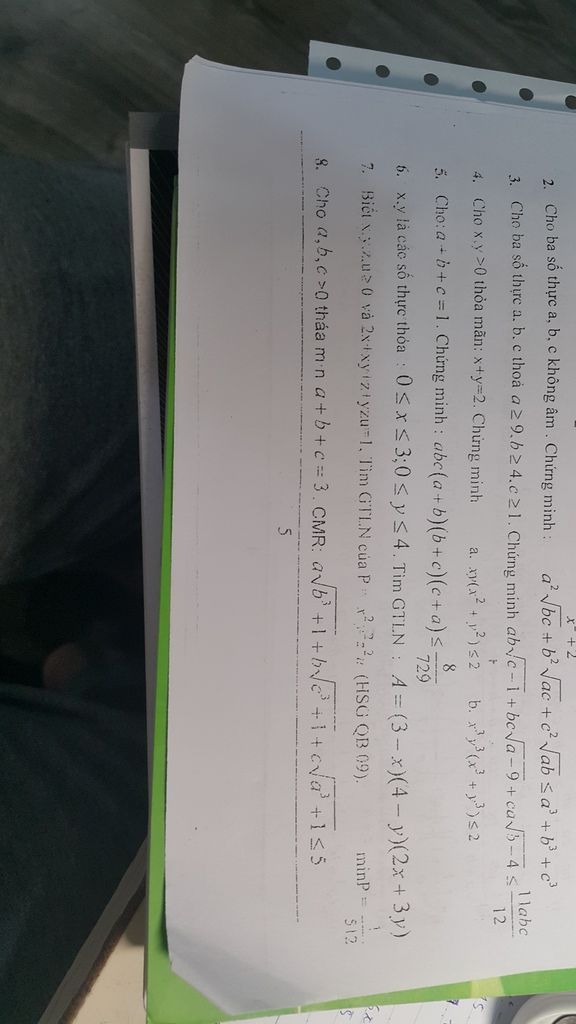 x² + 2
2. Cho ba số thực a, b, c không âm . Chứng minh : a²√bc + b²√ac + c²√ab ≤ a³ + b³ + c³
3. Cho ba số thực a, b, c thoả a ≥ 9, b ≥ 4, c ≥ 1. Chứng minh ab√c − 1 + bc√a − 9 + ca√b − 4 ≤ 11abc/12
4. Cho x,y >0 thỏa mãn: x+y=2. Chứng minh a. xy(x² + y²) ≤ 2 b. x³y³(x³ + y³) ≤ 2
5. Cho: a + b + c = 1. Chứng minh : abc(a + b)(b + c)(c + a) ≤ 8/729
6. x,y là các số thực thỏa : 0 ≤ x ≤ 3; 0 ≤ y ≤ 4. Tìm GTLN : A = (3 − x)(4 − y)(2x + 3y)
7. Biết x,y,z,u ≥ 0 và 2x+xy+z+yzu=1. Tìm GTLN của P = x²y²z²u (HSG QB 09). minP = 1/512
8. Cho a, b, c >0 tháa m·n a + b + c = 3. CMR: a√b³ + 1 + b√c³ + 1 + c√a³ + 1 ≤ 5
5